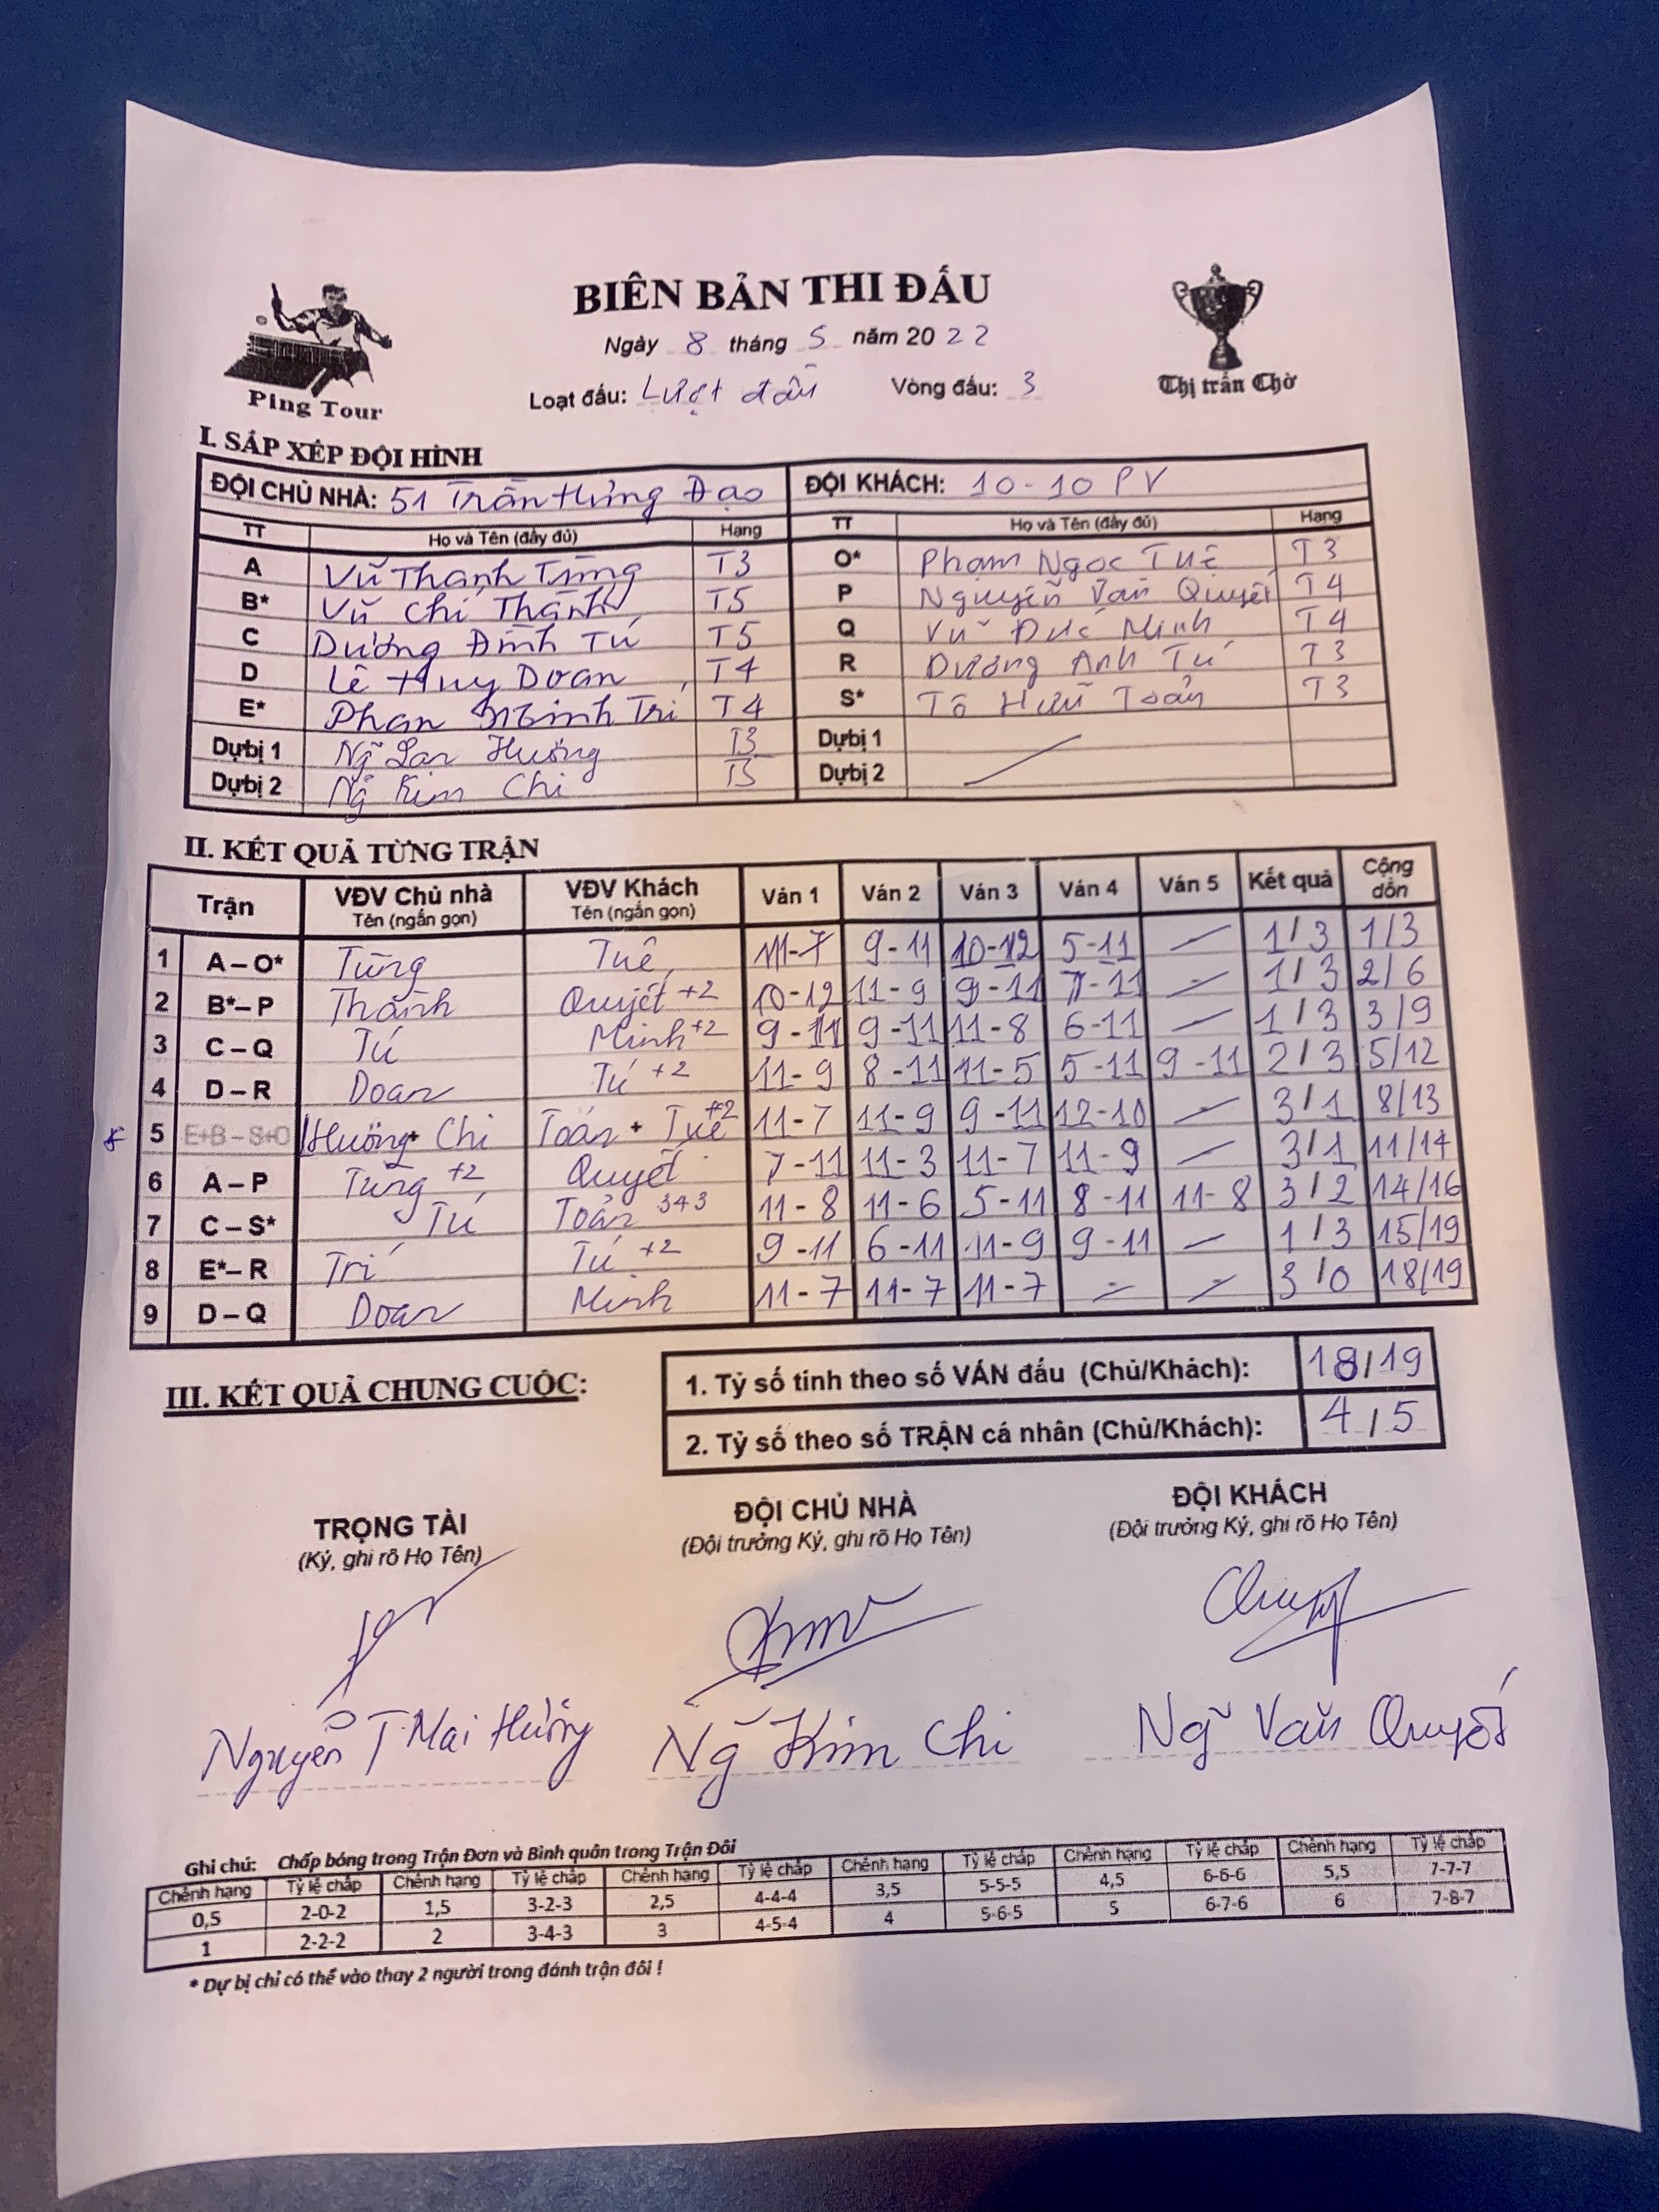 BIÊN BẢN THI ĐẤU
Ngày 8 tháng 5 năm 2022
Loạt đấu: Lượt đấu Vòng đấu: 3
Ping Tour
Thị trấn Chờ
I. SẮP XẾP ĐỘI HÌNH
ĐỘI CHỦ NHÀ: 51 Trần Hưng Đạo ĐỘI KHÁCH: 10-10 PV
TT Họ và Tên (đầy đủ) Hạng TT Họ và Tên (đầy đủ) Hạng
A Vũ Thanh Tùng T3 O* Phạm Ngọc Tuê T3
B* Vũ Chí Thành T5 P Nguyễn Văn Quyết T4
C Dương Đình Tú T5 Q Vũ Đức Minh T4
D Lê Huy Doan T4 R Dương Anh Tú T3
E* Phan Minh Trí T4 S* Tô Hữu Toản T3
Dự bị 1 Ng̃ Lan Hương T3 Dự bị 1
Dự bị 2 Ng̃ Kim Chi T3 Dự bị 2
II. KẾT QUẢ TỪNG TRẬN
Trận VĐV Chủ nhà Tên (ngắn gọn) VĐV Khách Tên (ngắn gọn) Ván 1 Ván 2 Ván 3 Ván 4 Ván 5 Kết quả Cộng dồn
1 A – O* Tùng Tuê 11-7 9-11 10-12 5-11 – 1/3 1/3
2 B*– P Thành Quyết +2 10-12 11-9 9-11 7-11 – 1/3 2/6
3 C – Q Tú Minh +2 9-11 9-11 11-8 6-11 – 1/3 3/9
4 D – R Doan Tú +2 11-9 8-11 11-5 5-11 9-11 2/3 5/12
5 E+B – S+O Hương + Chi Toản + Tuê +2 11-7 11-9 9-11 12-10 – 3/1 8/13
6 A – P Tùng +2 Quyết 7-11 11-3 11-7 11-9 – 3/1 11/14
7 C – S* Tú Toản 343 11-8 11-6 5-11 8-11 11-8 3/2 14/16
8 E*– R Trí Tú +2 9-11 6-11 11-9 9-11 – 1/3 15/19
9 D – Q Doan Minh 11-7 11-7 11-7 – – 3/0 18/19
III. KẾT QUẢ CHUNG CUỘC:
1. Tỷ số tính theo số VÁN đấu (Chủ/Khách): 18/19
2. Tỷ số theo số TRẬN cá nhân (Chủ/Khách): 4/5
TRỌNG TÀI ĐỘI CHỦ NHÀ ĐỘI KHÁCH
(Ký, ghi rõ Họ Tên) (Đội trưởng Ký, ghi rõ Họ Tên) (Đội trưởng Ký, ghi rõ Họ Tên)
Nguyễn T Mai Hương Ng̃ Kim Chi Ng̃ Văn Quyết
Ghi chú: Chấp bóng trong Trận Đơn và Bình quân trong Trận Đôi
Chênh hạng Tỷ lệ chấp Chênh hạng Tỷ lệ chấp Chênh hạng Tỷ lệ chấp Chênh hạng Tỷ lệ chấp Chênh hạng Tỷ lệ chấp Chênh hạng Tỷ lệ chấp
0,5 2-0-2 1,5 3-2-3 2,5 4-4-4 3,5 5-5-5 4,5 6-6-6 5,5 7-7-7
1 2-2-2 2 3-4-3 3 4-5-4 4 5-6-5 5 6-7-6 6 7-8-7
* Dự bị chỉ có thể vào thay 2 người trong đánh trận đôi !